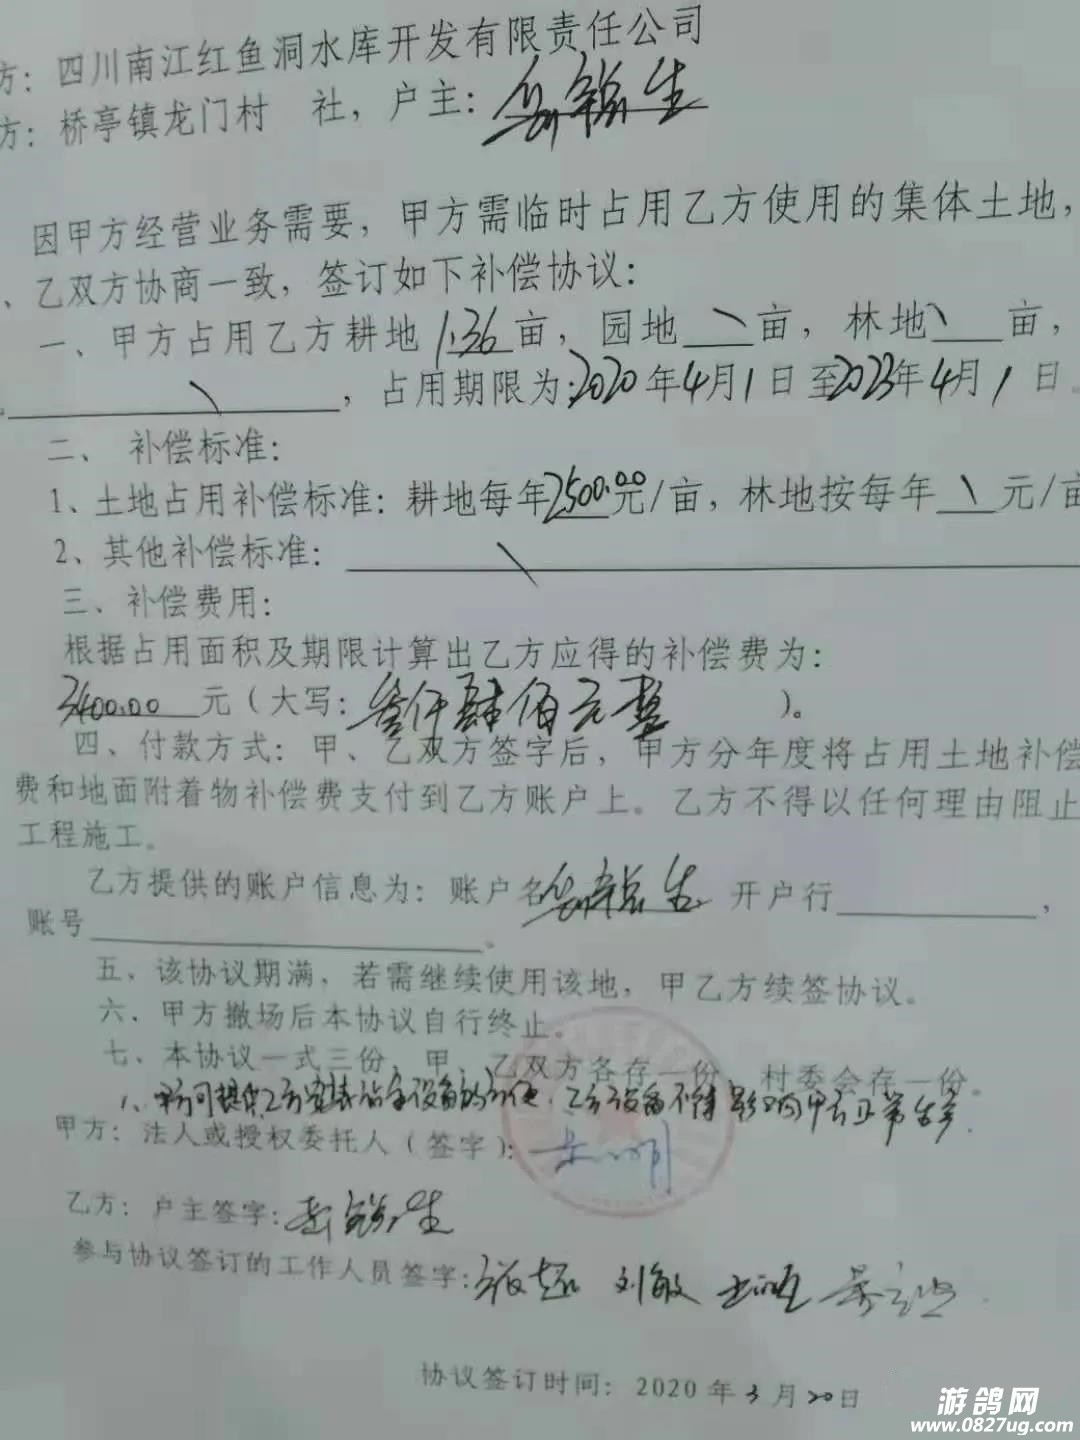 方：四川南江红鱼洞水库开发有限责任公司
方：桥亭镇龙门村 社，户主：
因甲方经营业务需要，甲方需临时占用乙方使用的集体土地，
、乙双方协商一致，签订如下补偿协议：
一、甲方占用乙方耕地 1.36 亩，园地 \ 亩，林地 \ 亩，
\ ，占用期限为：2020年4月1日至2023年4月1日。
二、补偿标准：
1、土地占用补偿标准：耕地每年2500.00元/亩，林地按每年 \ 元/亩
2、其他补偿标准： \
三、补偿费用：
根据占用面积及期限计算出乙方应得的补偿费为：
3400.00 元（大写：叁仟肆佰元整 ）。
四、付款方式：甲、乙双方签字后，甲方分年度将占用土地补偿
费和地面附着物补偿费支付到乙方账户上。乙方不得以任何理由阻止
工程施工。
乙方提供的账户信息为：账户名 开户行 ，
账号 。
五、该协议期满，若需继续使用该地，甲乙方续签协议。
六、甲方撤场后本协议自行终止。
七、本协议一式三份，甲、乙双方各存一份，村委会存一份。
乙方设备不得影响甲方正常生产.
甲方：法人或授权委托人（签字）：
乙方：户主签字：
参与协议签订的工作人员签字：张超 刘敏
协议签订时间：2020年3月20日
游鸽网
www.0827ug.com